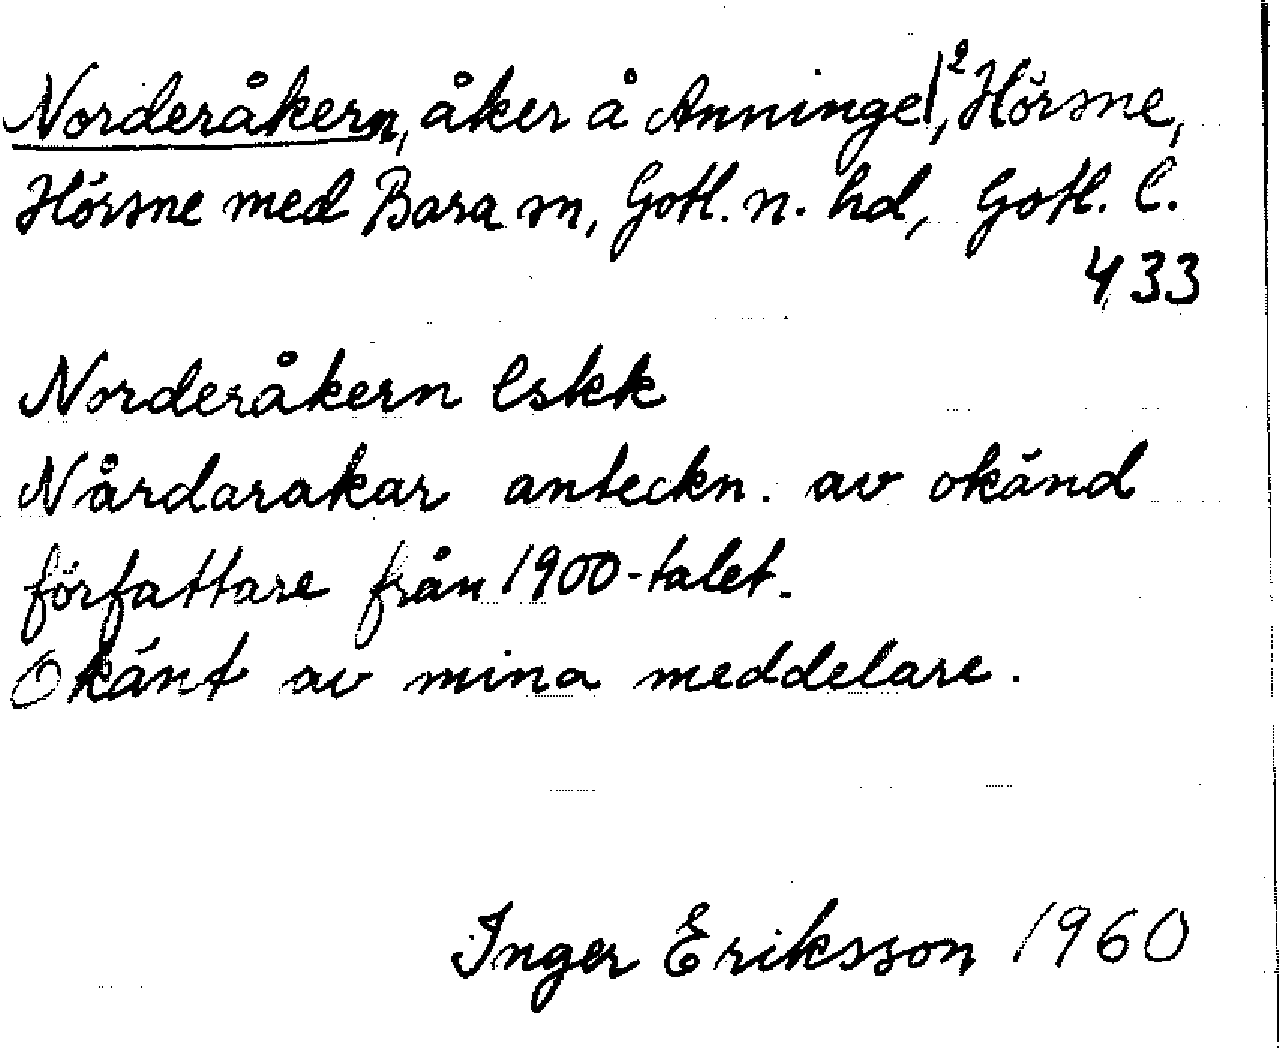 Norderåkern, åker å Anninge 1², Hörsne,
Hörsne med Bara sn, Gotl. n. hd, Gotl. l.
433
Norderåkern lskk
Nårdarakar anteckn. av okänd
författare från 1900-talet.
Okänt av mina meddelare.
Inger Eriksson 1960